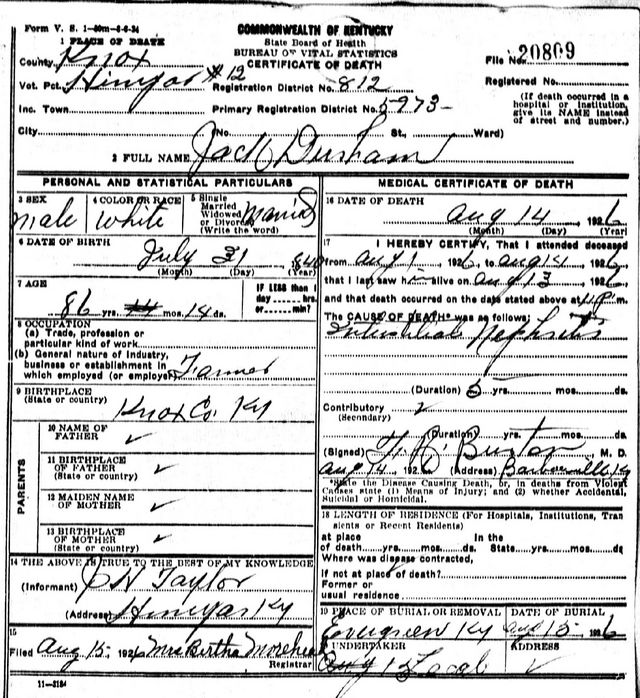 Form V. S. 1-50m-6-6-24
COMMONWEALTH OF KENTUCKY
State Board of Health
BUREAU OF VITAL STATISTICS
CERTIFICATE OF DEATH
1 PLACE OF DEATH
County Knox
Vot. Pct. Hinyar #12
Inc. Town
City
Registration District No. 812
Primary Registration District No. 5973
(No. St., Ward)
File No. 20809
Registered No.
(If death occurred in a hospital or institution, give its NAME instead of street and number.)
2 FULL NAME Jack Durham
PERSONAL AND STATISTICAL PARTICULARS
3 SEX
male
4 COLOR OR RACE
White
5 Single
Married
Widowed
or Divorced
(Write the word)
Married
6 DATE OF BIRTH
July 31, 1840
(Month) (Day) (Year)
7 AGE
86 yrs. mos. 14 ds.
IF LESS than 1
day hrs.
or min?
8 OCCUPATION
(a) Trade, profession or
particular kind of work
(b) General nature of industry,
business or establishment in
which employed (or employer) Farmer
9 BIRTHPLACE
(State or country)
Knox Co. Ky
PARENTS
10 NAME OF
FATHER ✓
11 BIRTHPLACE
OF FATHER ✓
(State or country)
12 MAIDEN NAME
OF MOTHER ✓
13 BIRTHPLACE
OF MOTHER ✓
(State or country)
14 THE ABOVE IS TRUE TO THE BEST OF MY KNOWLEDGE
(Informant) Taylor
(Address) Hinyar Ky
15
Filed Aug 15, 1926 Mrs Bertha Morehead
Registrar
11-3184
MEDICAL CERTIFICATE OF DEATH
16 DATE OF DEATH
Aug 14, 1926
(Month) (Day) (Year)
17 I HEREBY CERTIFY, That I attended deceased
from Aug 1, 1926, to Aug 14, 1926,
that I last saw h alive on Aug 13, 1926,
and that death occurred on the date stated above at m.
The CAUSE OF DEATH* was as follows:
Interstitial Nephritis
(Duration) 5 yrs. mos. ds.
Contributory ✓
(Secondary)
(Duration) yrs. mos. ds.
(Signed) Burton, M. D.
Aug 14, 1926 (Address) Barbourville Ky
*State the Disease Causing Death, or, in deaths from Violent
Causes state (1) Means of Injury; and (2) whether Accidental,
Suicidal or Homicidal.
18 LENGTH OF RESIDENCE (For Hospitals, Institutions, Tran
sients or Recent Residents)
at place In the
of death yrs. mos. ds. State yrs. mos. ds.
Where was disease contracted,
if not at place of death?
Former or
usual residence
19 PLACE OF BURIAL OR REMOVAL DATE OF BURIAL
Evergreen Ky Aug 15, 1926
UNDERTAKER ADDRESS
Local ✓